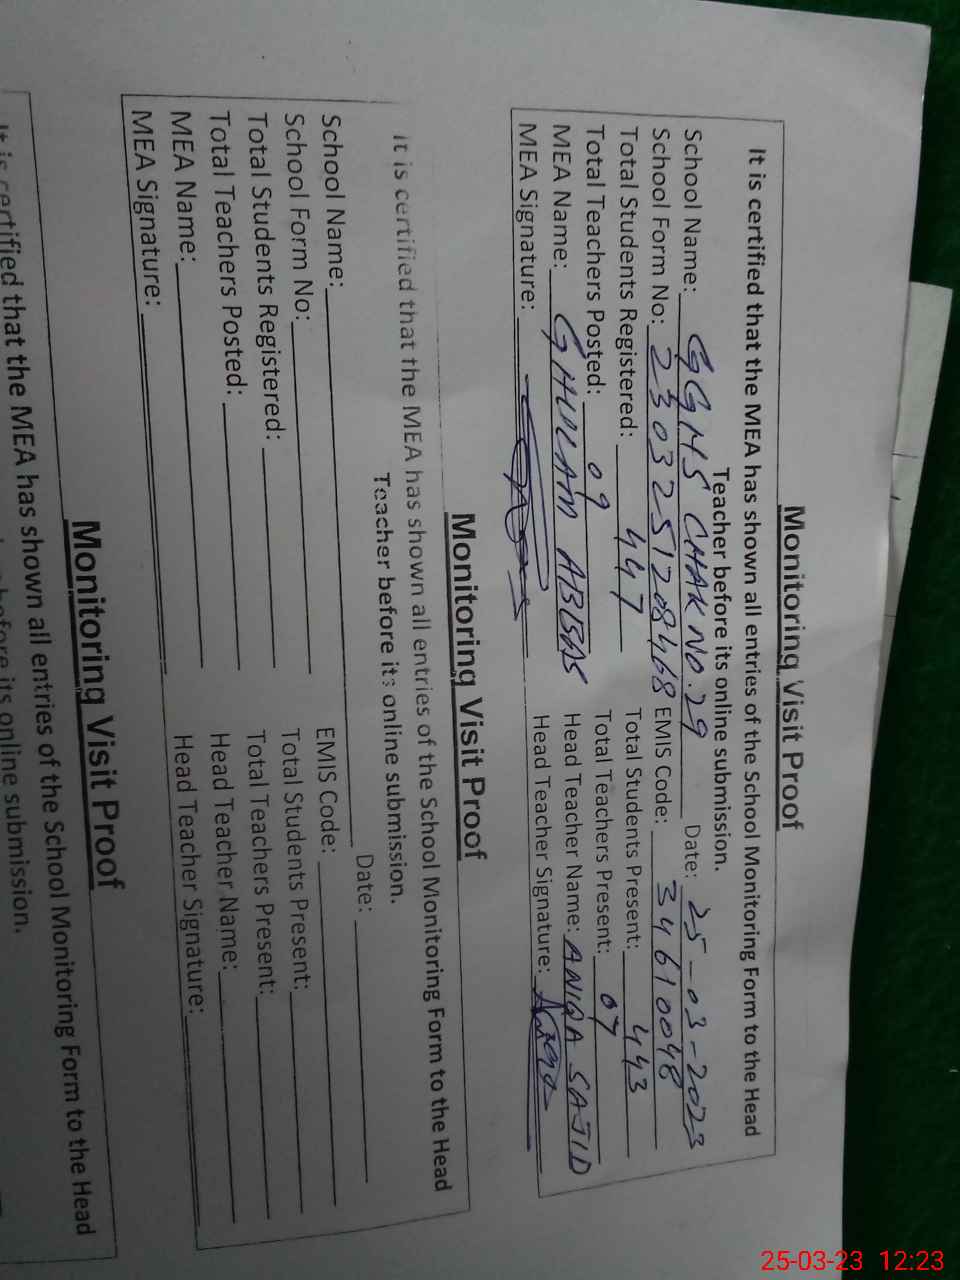 Monitoring Visit Proof
It is certified that the MEA has shown all entries of the School Monitoring Form to the Head
Teacher before its online submission.
School Name: GGHS CHAK NO.29 Date: 25-03-2023
School Form No: 2303251208468 EMIS Code: 34610048
Total Students Registered: 447 Total Students Present: 443
Total Teachers Posted: 09 Total Teachers Present: 09
MEA Name: GHULAM ABBAS Head Teacher Name: ANIQA SAJID
MEA Signature: Head Teacher Signature:
Monitoring Visit Proof
It is certified that the MEA has shown all entries of the School Monitoring Form to the Head
Teacher before its online submission.
School Name: Date:
School Form No: EMIS Code:
Total Students Registered: Total Students Present:
Total Teachers Posted: Total Teachers Present:
MEA Name: Head Teacher Name:
MEA Signature: Head Teacher Signature:
Monitoring Visit Proof
It is certified that the MEA has shown all entries of the School Monitoring Form to the Head
before its online submission.
25-03-23 12:23